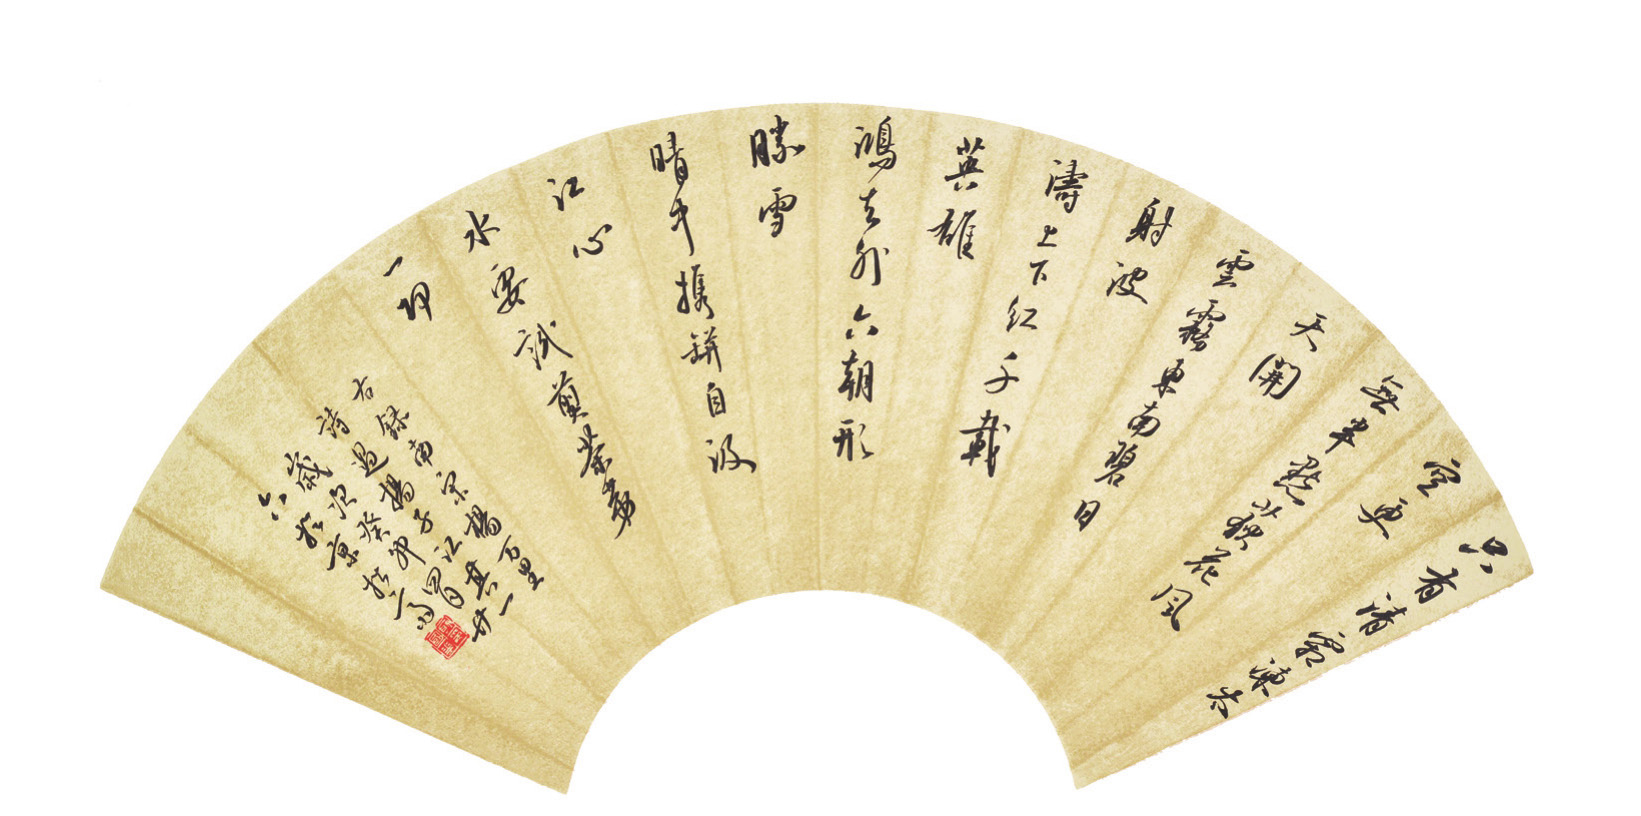 只有清霜凍太
空更
無半點荻花風
天開
雲霧東南碧日
射波
濤上下紅千載
英雄
鴻去外六朝形
勝雪
晴中攜缾自汲
江心
水要試煎茶第
一功
右錄南宋楊万里
詩過揚子江其一
歲次癸卯四月廿
六於京